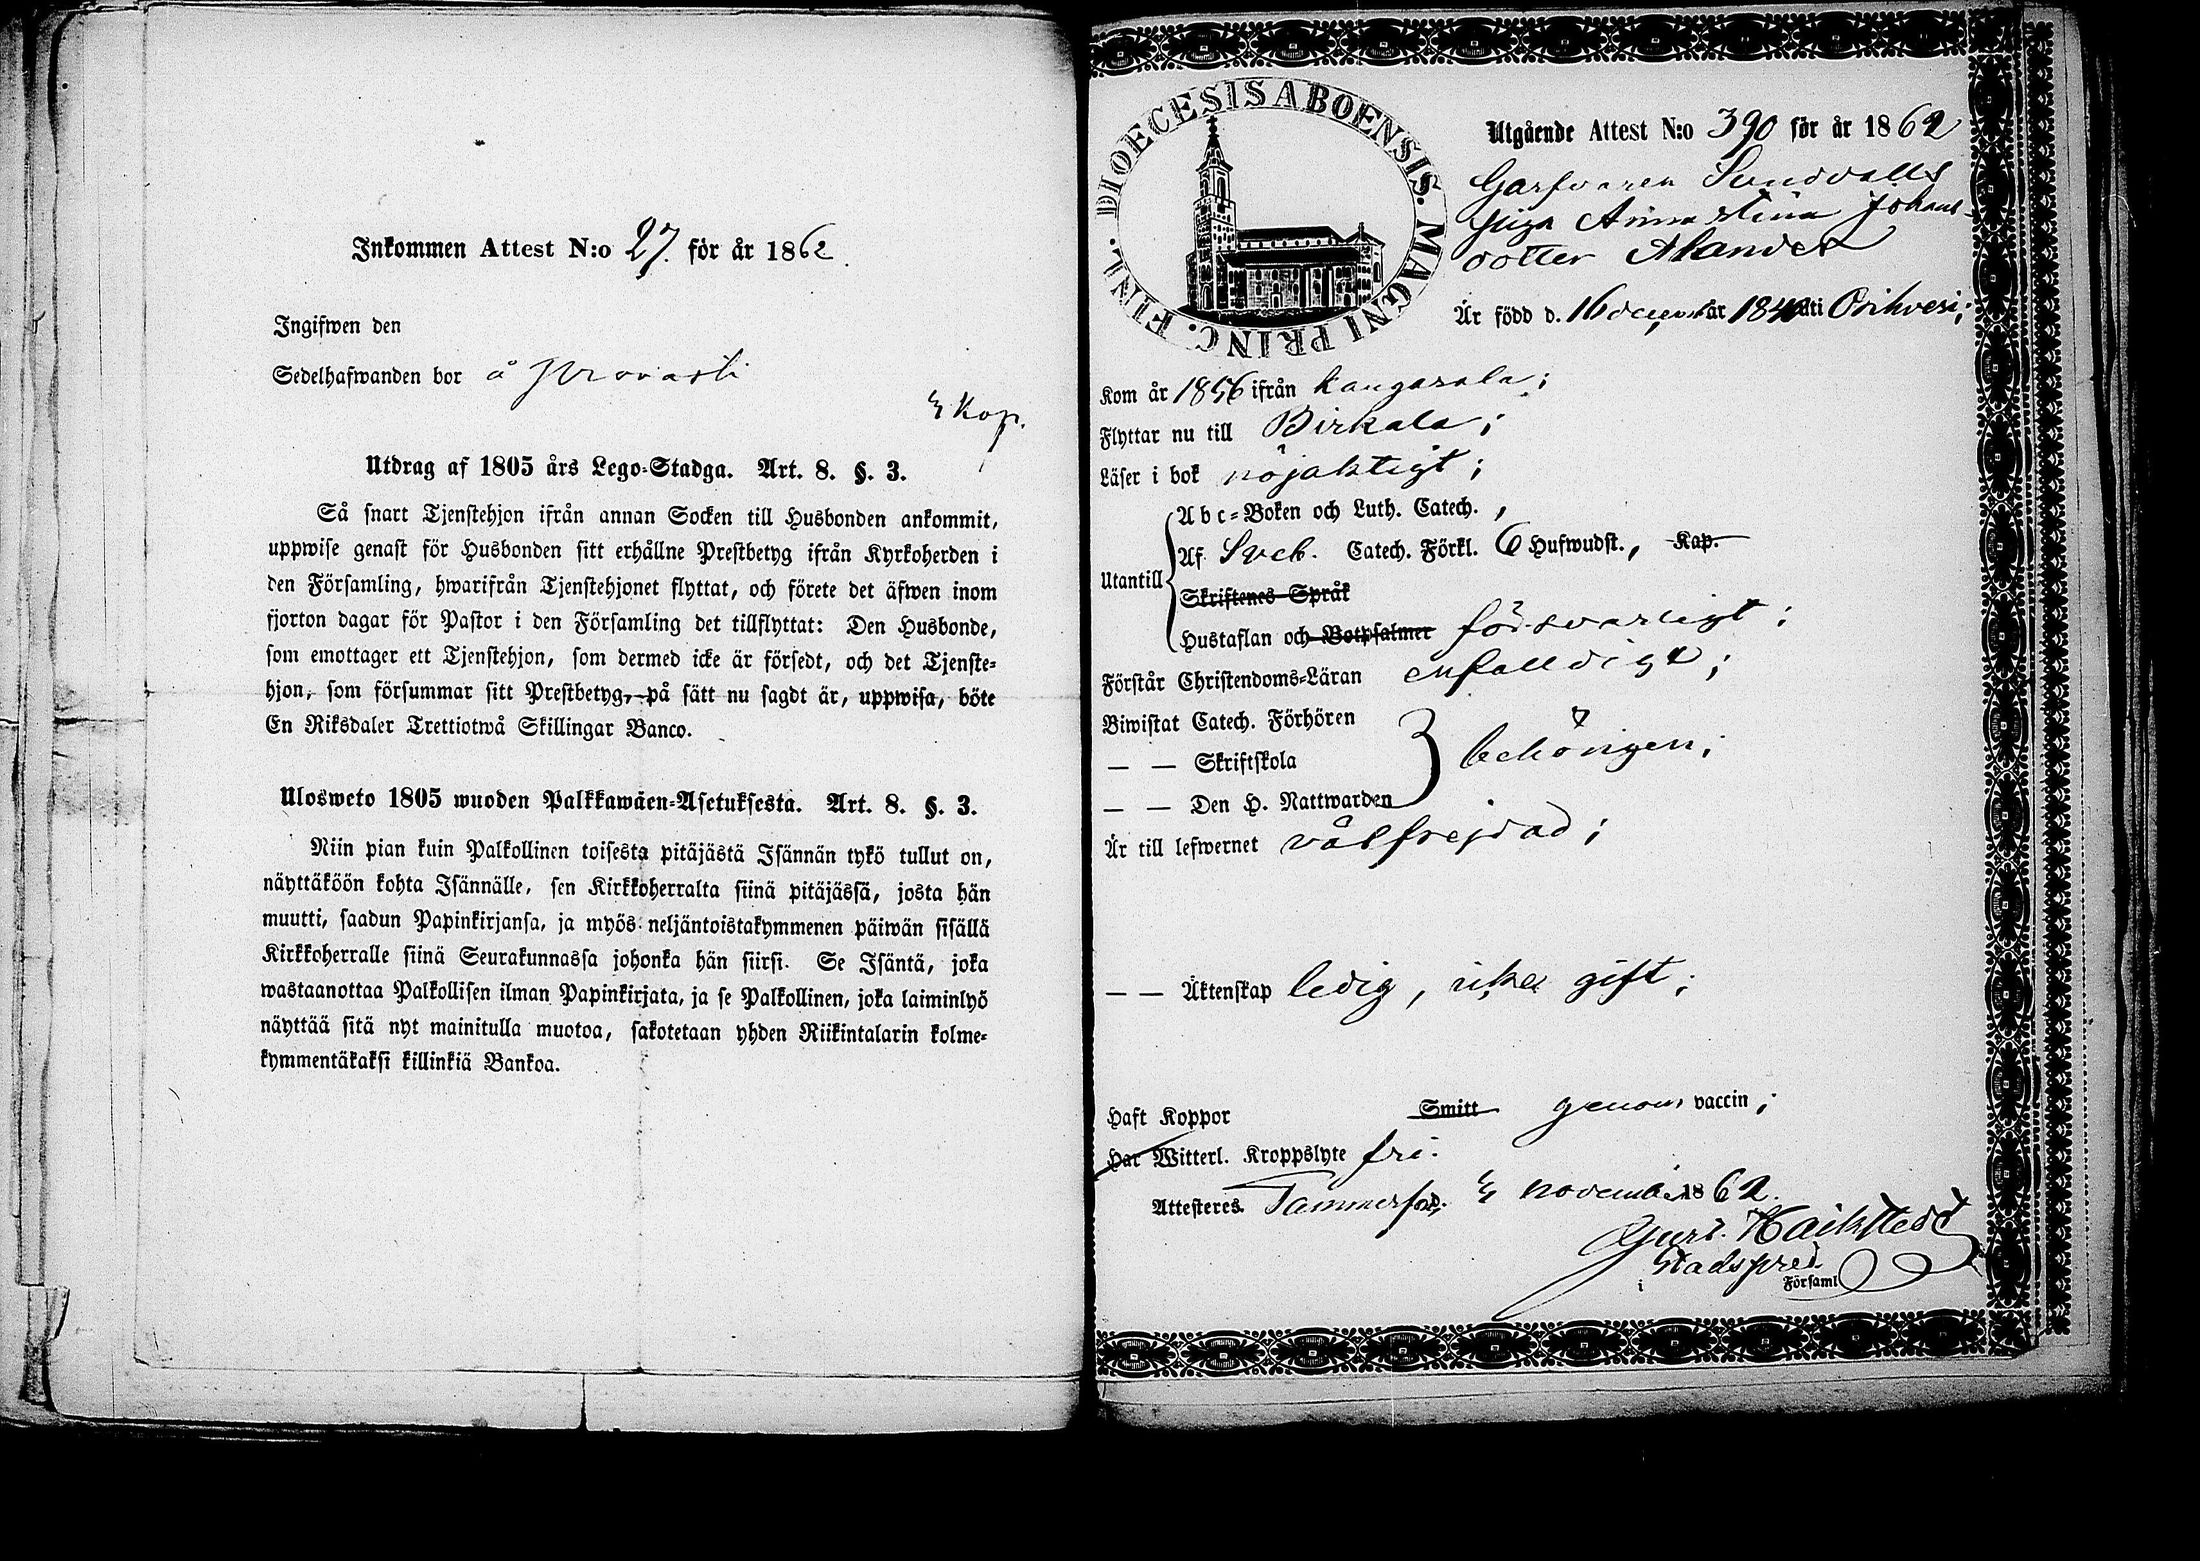 Inkommen Attest N:o 27. för år 1862.
Ingifwen den
Sedelhafwanden bor å
4 Kop.
Utdrag af 1805 års Lego-Stadga. Art. 8. §. 3.
Så snart Tjenstehjon ifrån annan Socken till Husbonden ankommit,
uppwise genast för Husbonden sitt erhållne Prestbetyg ifrån Kyrkoherden i
den Församling, hwarifrån Tjenstehjonet flyttat, och förete det äfwen inom
fjorton dagar för Pastor i den Församling det tillflyttat: Den Husbonde,
som emottager ett Tjenstehjon, som dermed icke är försedt, och det Tjenste-
hjon, som försummar sitt Prestbetyg, på sätt nu sagdt är, uppwisa, böte
En Riksdaler Trettiotwå Skillingar Banco.
Ulosweto 1805 wuoden Palkkawäen-Asetuksesta. Art. 8. §. 3.
Niin pian kuin Palkollinen toisesta pitäjästä Isännän tykö tullut on,
näyttäköön kohta Isännälle, sen Kirkkoherralta siinä pitäjässä, josta hän
muutti, saadun Papinkirjansa, ja myös neljäntoistakymmenen päiwän sisällä
Kirkkoherralle siinä Seurakunnassa johonka hän siirsi. Se Isäntä, joka
wastaanottaa Palkollisen ilman Papinkirjata, ja se Palkollinen, joka laiminlyö
näyttää sitä nyt mainitulla muotoa, sakotetaan yhden Riikintalarin kolme-
kymmentäkaksi killinkiä Bankoa.
DIOECESIS ABOENSIS. MAGNI PRINC. FINL.
Utgående Attest N:o 390 för år 1862
Garfvaren Sundvalls
piga Anna Stina Johans-
dotter Alander
Är född d. 16 december år 1840 i Orihvesi;
Kom år 1856 ifrån Kangasala;
Flyttar nu till Birkala;
Läser i bok nöjaktigt;
Utantill
Abc-Boken och Luth. Catech.,
Af Sveb. Catech. Förkl. 6 Hufwudst., Kap.
Skriftenes Språk
Hustaflan och Botpsalmer försvarligt;
Förstår Christendoms-Läran enfalldigt;
Biwistat Catech. Förhören
— — Skriftskola behörigen;
— — Den H. Nattwarden
Är till lefwernet välfrejdad;
— — Äktenskap ledig, icke gift;
Haft Koppor Smitt genom vaccin;
Har Witterl. Kroppslyte fri.
Attesteres. Tammerfors 4 november 1862.
Gust. Haikstedt
Stadspred.
i Församl